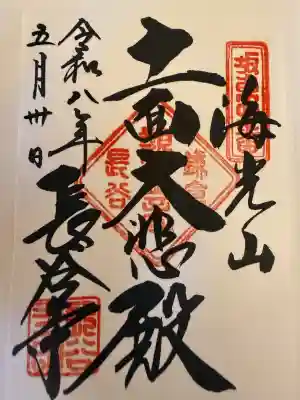 坂東四番
海光山
十一面大悲殿
鎌倉
長谷
長谷寺
令和八年
五月卅日